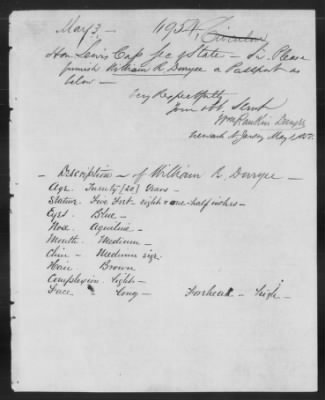 May 3. — 11954,
Hon Lewis Cass Sec of State — Sir Please
furnish William R. Duryee a Passport as
below —
Very Respectfully
Your obt. Servt
Wm Rankin Duryee
Newark N. Jersey May 2
— Description — of William R. Duryee —
Age. Twenty (20) Years —
Stature. Five Feet eight & one-half inches —
Eyes. Blue —
Nose. Aquiline —
Mouth. Medium —
Chin — Medium size.
Hair Brown
Complexion. Light —
Face Long — Forehead — High —